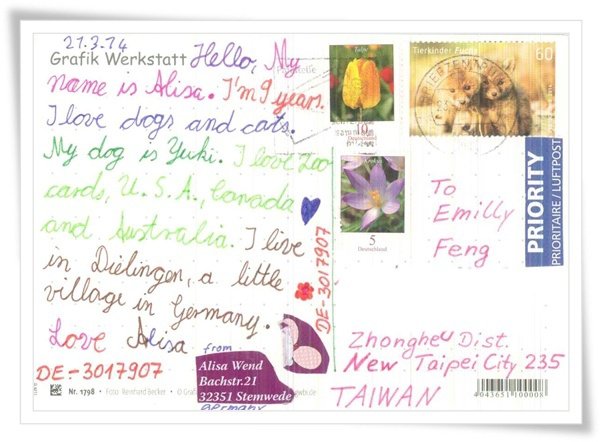 21.3.14
Grafik Werkstatt Hello, My
name is Alisa. I'm 9 years.
I love dogs and cats.
My dog is Yuki. I love Zoo
cards, U.S.A., Canada
and Australia. I live
in Dielingen, a little
village in Germany.
Love Alisa
DE-3017907
DE-3017907
from
Alisa Wend
Bachstr.21
32351 Stemwede
Germany
Nr. 1798 Foto Reinhard Becker
Tulpe
Deutschland
Krokus
5
Deutschland
Tierkinder Fuchs
60
BRIEFZENTRUM
PRIORITY
PRIORITAIRE / LUFTPOST
To
Emilly
Feng
Zhongheu Dist.
New Taipei City 235
TAIWAN
4043651100008